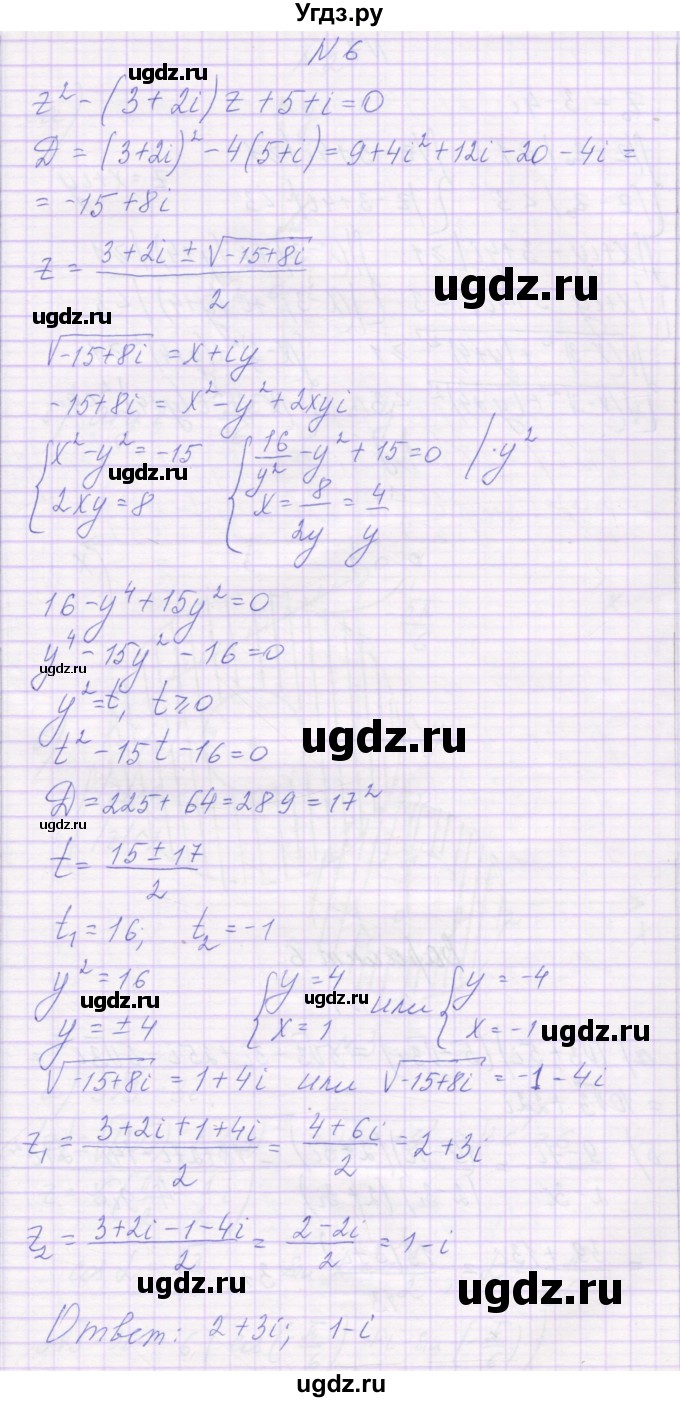 Угдз.ру
N 6
ugdz.ru
z² - (3 + 2i) z + 5 + i = 0
D = (3+2i)² - 4(5+i) = 9 + 4i² + 12i - 20 - 4i =
= -15 + 8i
z = (3 + 2i ± √(-15+8i)) / 2
ugdz.ru
ugdz.ru
√(-15+8i) = x + iy
-15 + 8i = x² - y² + 2xyi
{ x² - y² = -15 { 16/y² - y² + 15 = 0 | · y²
ugdz.ru
2xy = 8 x = 8/2y = 4/y
16 - y⁴ + 15y² = 0
y⁴ - 15y² - 16 = 0
ugdz.ru
y² = t, t ≥ 0
ugdz.ru
t² - 15t - 16 = 0
D = 225 + 64 = 289 = 17²
ugdz.ru
t = (15 ± 17) / 2
t₁ = 16; t₂ = -1
y² = 16 { y = 4 или { y = -4
ugdz.ru ugdz.ru
y = ± 4 x = 1 x = -1
ugdz.ru
√(-15+8i) = 1 + 4i или √(-15+8i) = -1 - 4i
z₁ = (3+2i+1+4i) / 2 = (4+6i) / 2 = 2 + 3i
z₂ = (3+2i-1-4i) / 2 = (2-2i) / 2 = 1 - i
ugdz.ru ugdz.ru
Ответ: 2+3i; 1-i
ugdz.ru